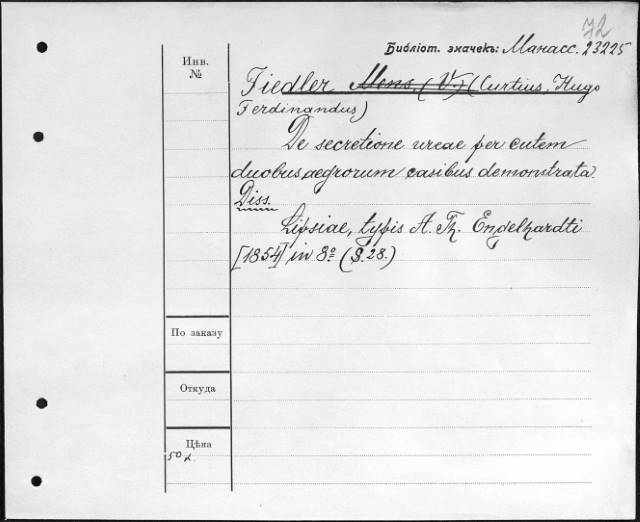 72
Библіот. значекъ: Манасс. 23225
Инв.
№
Fiedler Mens. (V.) (Curtius, Hugo
Ferdinandus)
De secretione ureae per cutem
duobus aegrorum casibus demonstrata.
Diss.
Lipsiae, typis A. Th. Engelhardti
[1854] in 8º (S. 28.)
По заказу
Откуда
Цѣна
50 к.